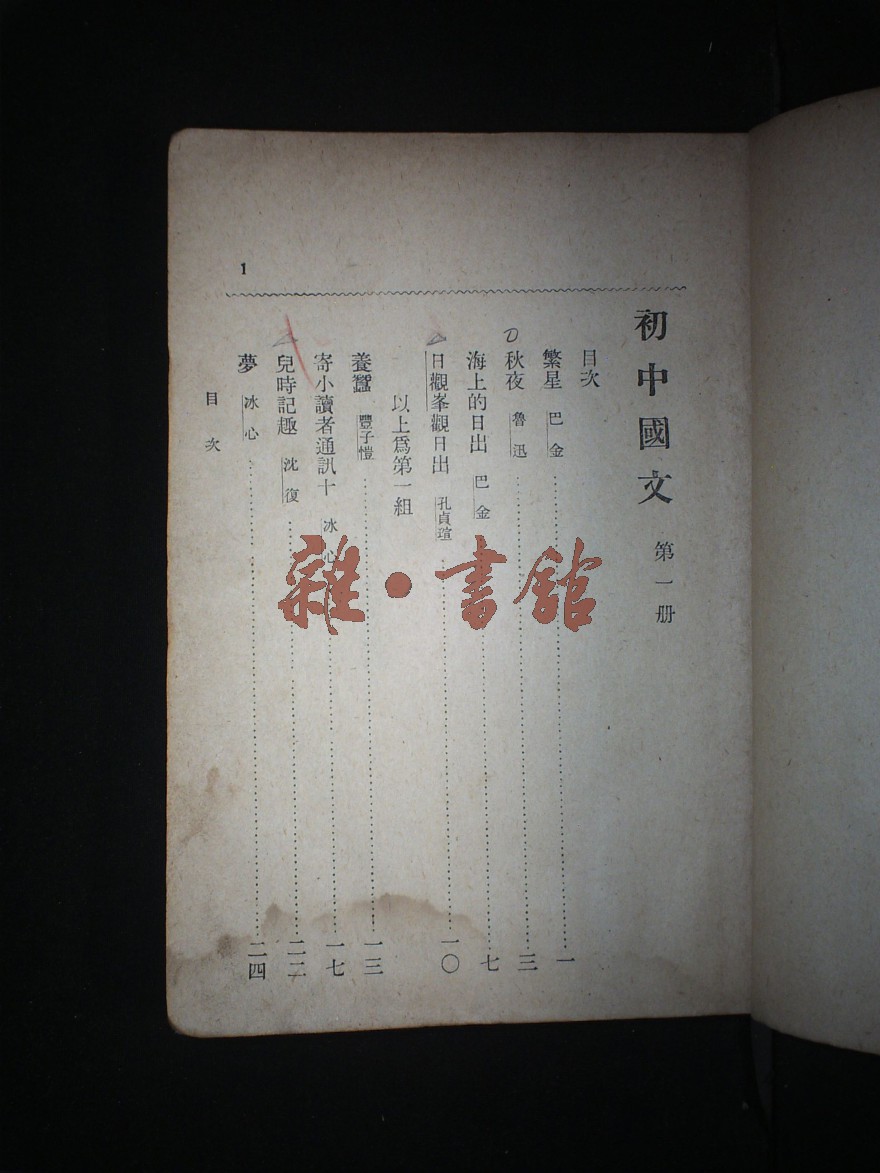 初中國文 第一册
目次
繁星 巴金 一
秋夜 魯迅 三
海上的日出 巴金 七
日觀峯觀日出 孔貞瑄 一〇
以上爲第一組
養蠶 豐子愷 一三
寄小讀者通訊十 冰心 一七
兒時記趣 沈復 二二
夢 冰心 二四
目次
1
雜·書館